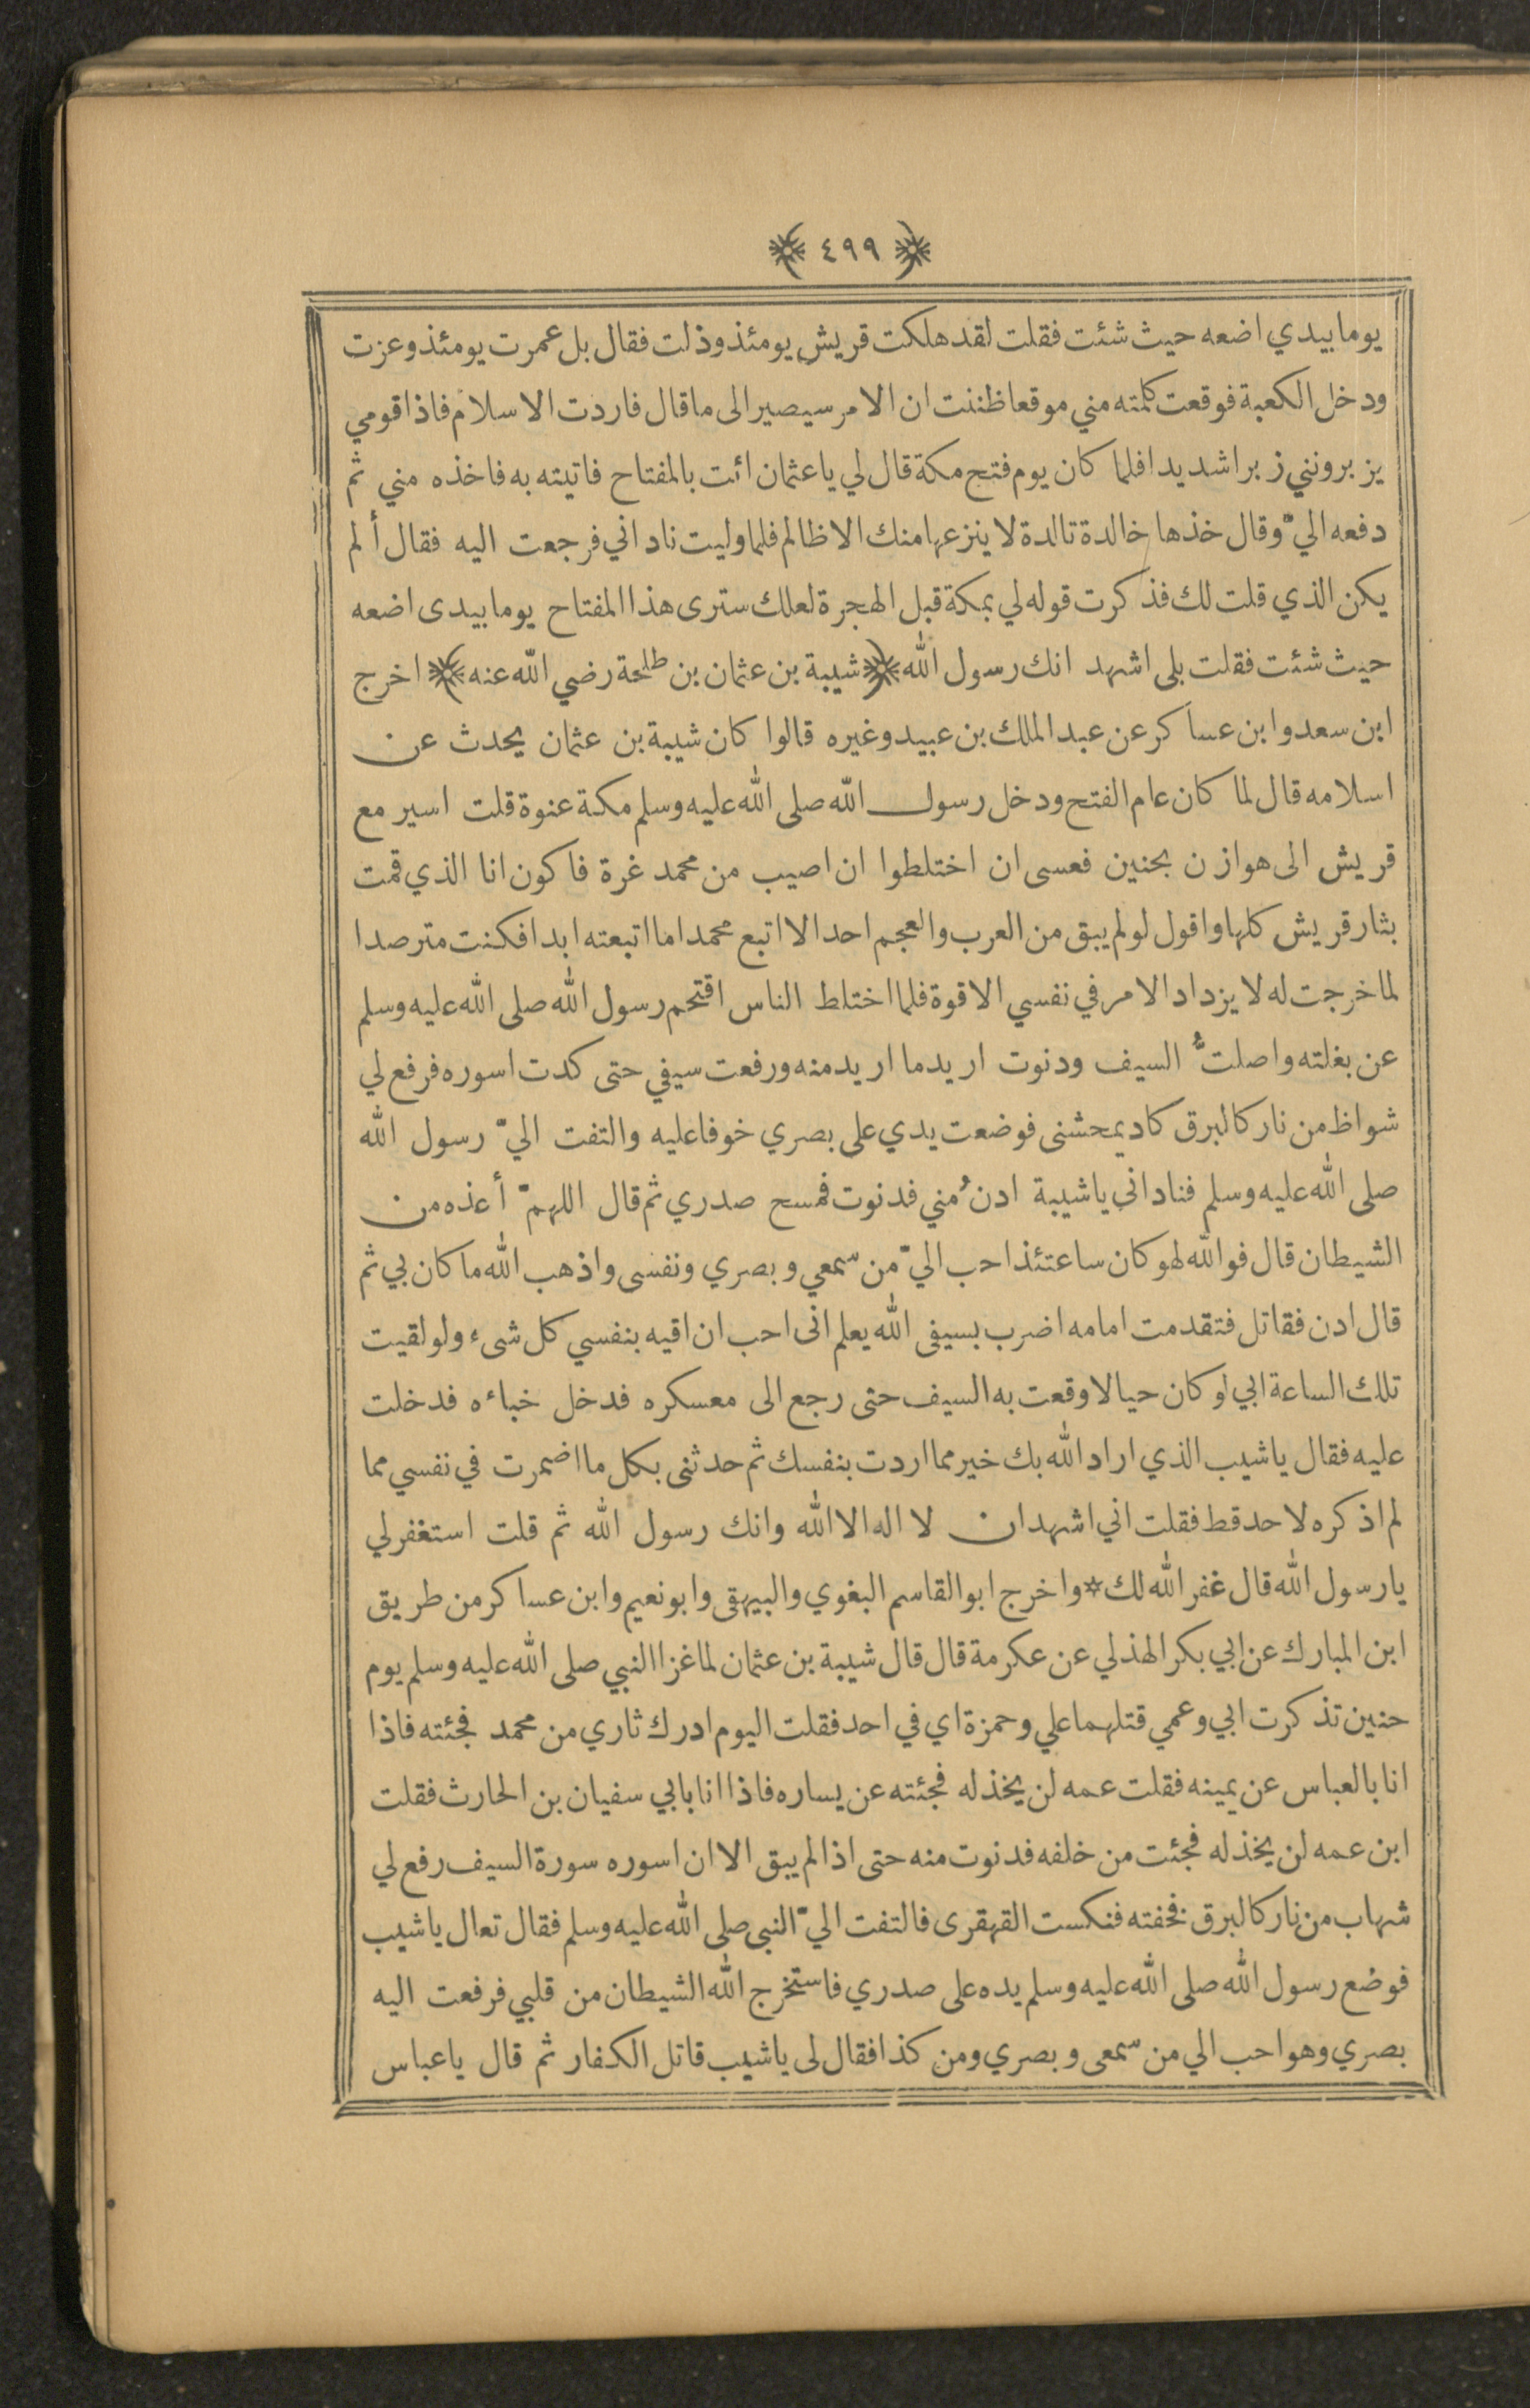 ﴿ ٤٩٩ ﴾
يوما بيدي اضعه حيث شئت فقلت لقد هلكت قريش يومئذ وذلت فقال بل عمرت يومئذ وعزت
ودخل الكعبة فوقعت كلمته مني موقعا ظننت ان الامر سيصير الى ما قال فاردت الاسلام فاذا قومي
يزبرونني زبرا شديدا فلما كان يوم فتح مكة قال لي ياعثمان ائت بالمفتاح فاتيته به فاخذه مني ثم
دفعه اليّ وقال خذها خالدة تالدة لا ينزعها منك الا ظالم فلما وليت ناداني فرجعت اليه فقال ألم
يكن الذي قلت لك فذكرت قوله لي بمكة قبل الهجرة لعلك سترى هذا المفتاح يوما بيدى اضعه
حيث شئت فقلت بلى اشهد انك رسول الله ﴿ شيبة بن عثمان بن طلحة رضي الله عنه ﴾ اخرج
ابن سعد وابن عساكر عن عبد الملك بن عبيد وغيره قالوا كان شيبة بن عثمان يحدث عن
اسلامه قال لما كان عام الفتح ودخل رسول الله صلى الله عليه وسلم مكة عنوة قلت اسير مع
قريش الى هوازن بحنين فعسى ان اختلطوا ان اصيب من محمد غرة فاكون انا الذي قمت
بثار قريش كلها واقول لو لم يبق من العرب والعجم احد الا اتبع محمدا ما اتبعته ابدا فكنت مترصدا
لما خرجت له لا يزداد الامر في نفسي الا قوة فلما اختلط الناس اقتحم رسول الله صلى الله عليه وسلم
عن بغلته واصلتُّ السيف ودنوت اريد ما اريد منه ورفعت سيفي حتى كدت اسوره فرفع لي
شواظ من نار كالبرق كاد يمحشنى فوضعت يدي على بصري خوفا عليه والتفت اليّ رسول الله
صلى الله عليه وسلم فناداني ياشيبة ادنُ مني فدنوت فمسح صدري ثم قال اللهمّ أعذه من
الشيطان قال فوالله لهو كان ساعتئذ احب اليّ من سمعي وبصري ونفسى واذهب الله ما كان بي ثم
قال ادن فقاتل فتقدمت امامه اضرب بسيفى الله يعلم انى احب ان اقيه بنفسي كل شىء ولو لقيت
تلك الساعة ابي لو كان حيا لاوقعت به السيف حتى رجع الى معسكره فدخل خباءه فدخلت
عليه فقال ياشيب الذي اراد الله بك خير مما اردت بنفسك ثم حدثنى بكل ما اضمرت في نفسي مما
لم اذكره لاحد قط فقلت اني اشهد ان لا اله الا الله وانك رسول الله ثم قلت استغفر لي
يارسول الله قال غفر الله لك * واخرج ابو القاسم البغوي والبيهقى وابو نعيم وابن عساكر من طريق
ابن المبارك عن ابي بكر الهذلي عن عكرمة قال قال شيبة بن عثمان لما غزا النبي صلى الله عليه وسلم يوم
حنين تذكرت ابي وعمي قتلهما علي وحمزة اي في احد فقلت اليوم ادرك ثاري من محمد فجئته فاذا
انا بالعباس عن يمينه فقلت عمه لن يخذله فجئته عن يساره فاذا انا بابي سفيان بن الحارث فقلت
ابن عمه لن يخذله فجئت من خلفه فدنوت منه حتى اذا لم يبق الا ان اسوره سورة السيف رفع لي
شهاب من نار كالبرق فخفته فنكست القهقرى فالتفت اليّ النبى صلى الله عليه وسلم فقال تعال ياشيب
فوضع رسول الله صلى الله عليه وسلم يده على صدري فاستخرج الله الشيطان من قلبي فرفعت اليه
بصري وهو احب الي من سمعى وبصري ومن كذا فقال لى ياشيب قاتل الكفار ثم قال ياعباس